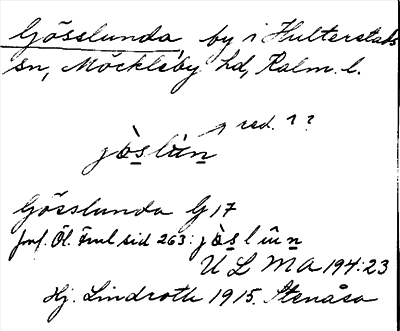 Gösslunda, by i Hulterstads
sn, Möckleby hd, Kalm. l.
red. ??
jòslùn
Gösslunda G 17
jmf. Öl. Fml sid 263: jòslūn
U L M A 194:23
Hj. Lindroth 1915. Stenåsa